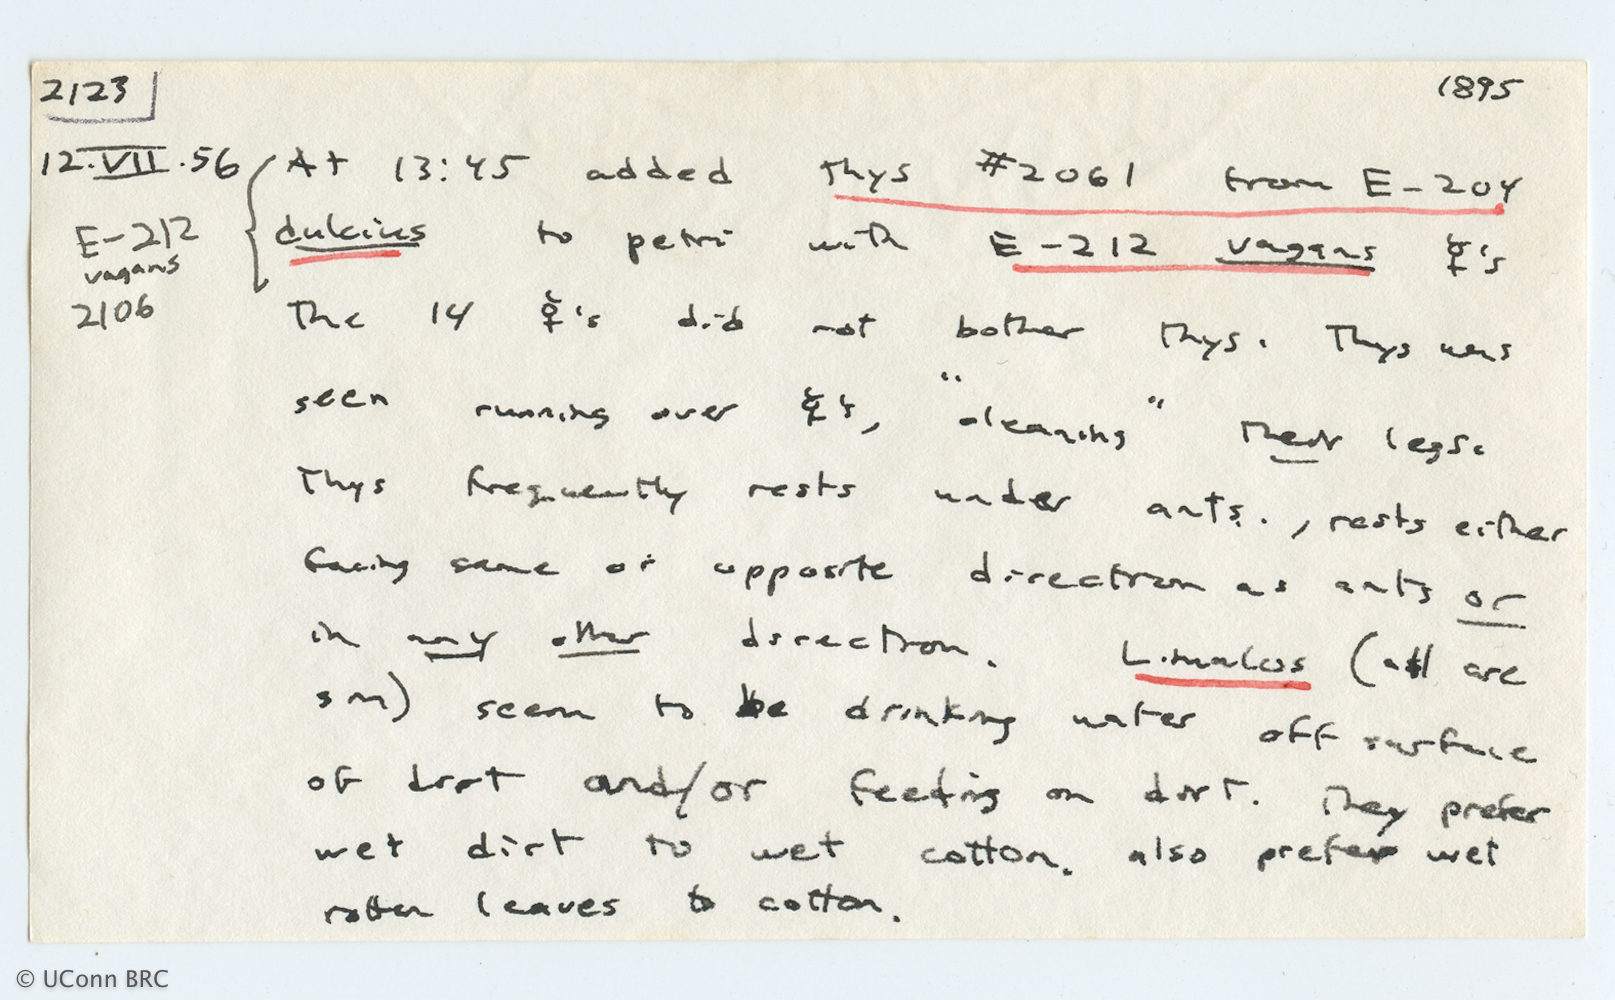 2123
1895
12.VII.56
E-212
vagans
2106
At 13:45 added Thys #2061 from E-204
dulcius to petri with E-212 vagans ☿'s
The 14 ☿'s did not bother Thys. Thys was
seen running over ☿'s, "cleaning" their legs.
Thys frequently rests under ants., rests either
facing same or opposite direction as ants or
in any other direction. Limulus (all are
sm) seem to be drinking water off surface
of dirt and/or feeding on dirt. They prefer
wet dirt to wet cotton. also prefer wet
rotten leaves to cotton.
© UConn BRC